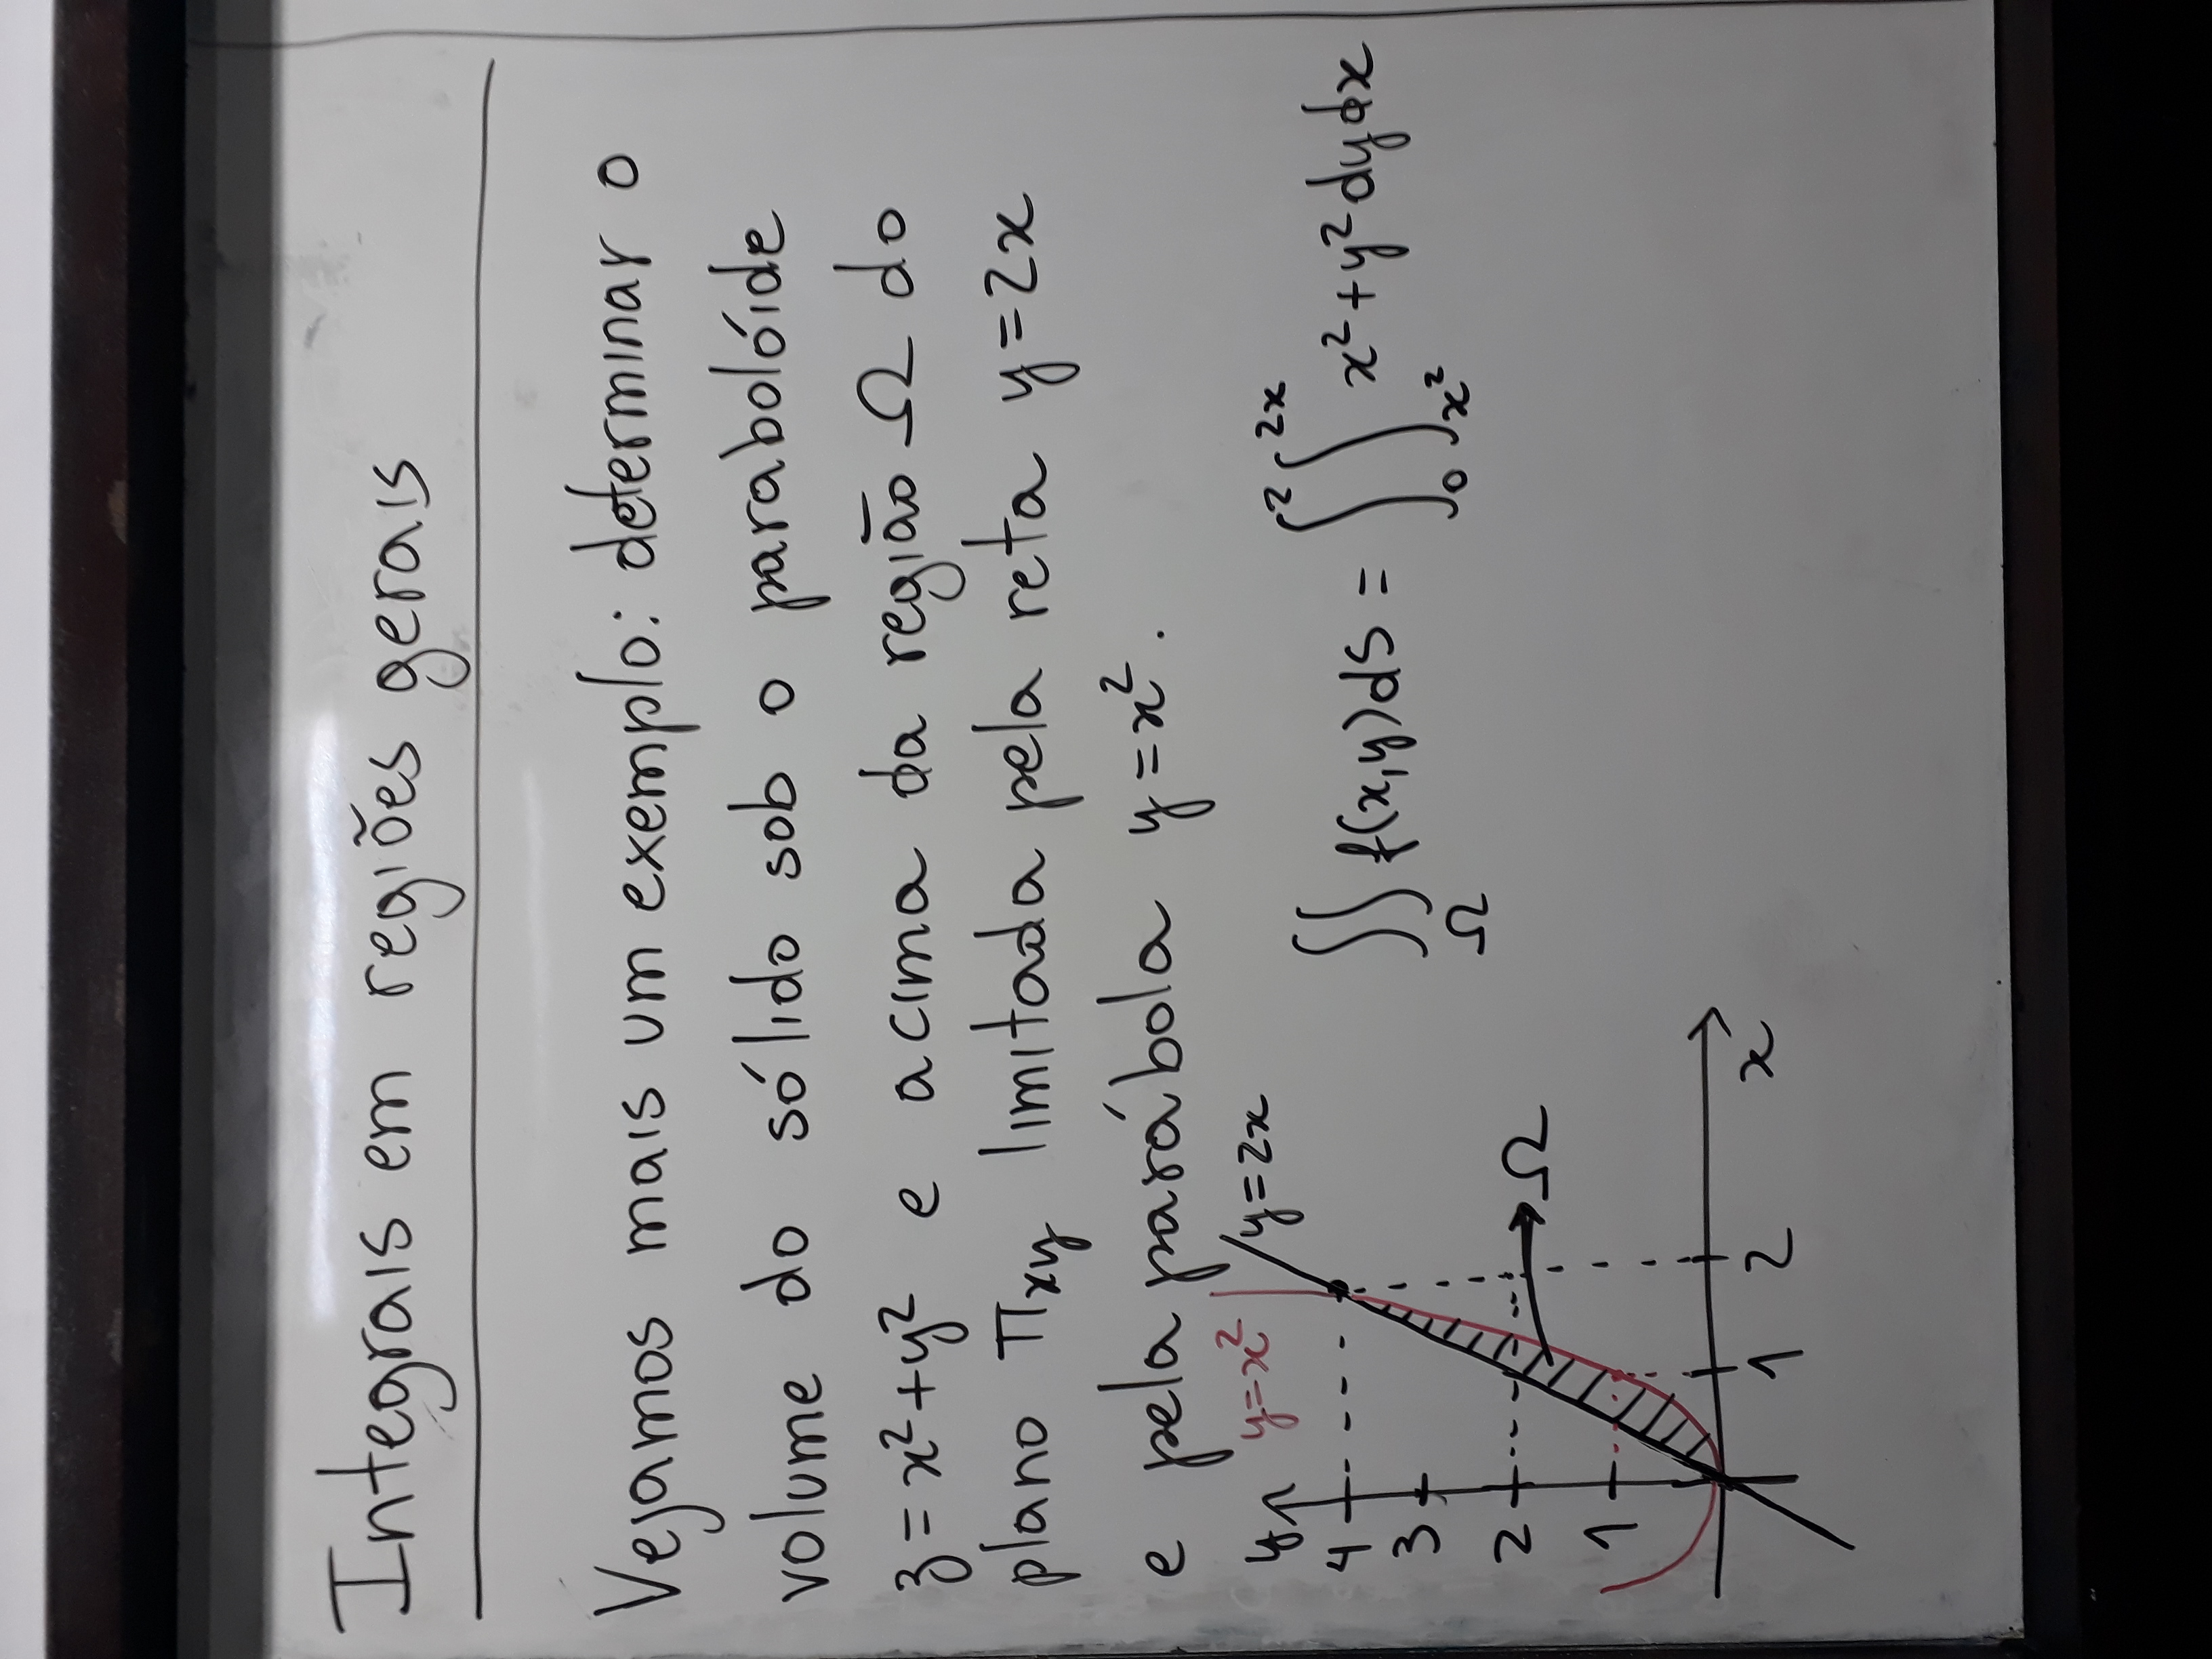 Integrais em regiões gerais
Vejamos mais um exemplo: determinar o
volume do sólido sob o parabolóide
z = x² + y² e acima da região Ω do
plano Πxy limitada pela reta y = 2x
e pela parábola y = x².
y=x² y=2x
y
4
3
2
1
Ω
1 2 x
∬_Ω f(x,y)dS = ∫_0^2 ∫_{x²}^{2x} x² + y² dy dx